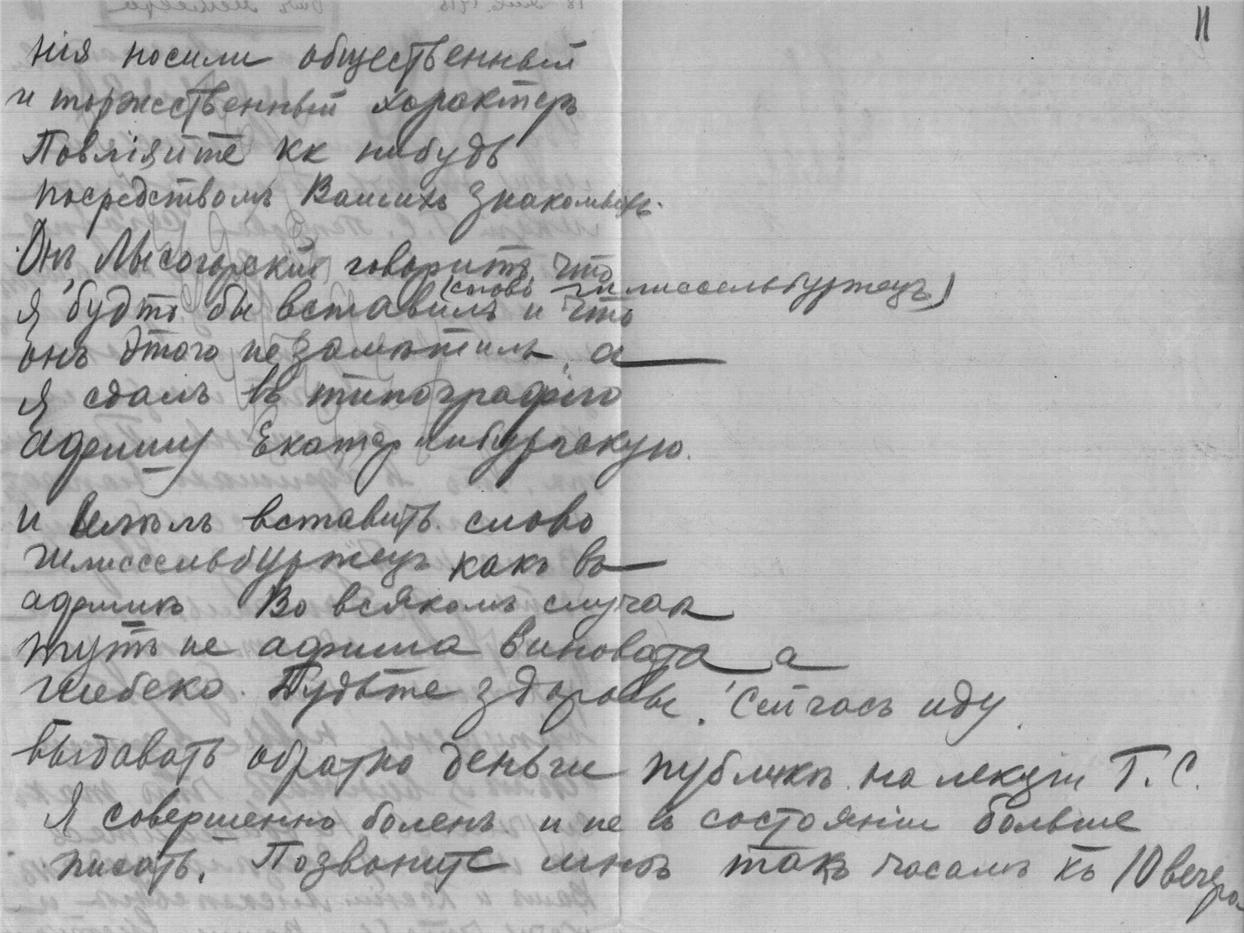 11
нiя носили общественный
и торжественный характеръ
Повлiяйте кк нибудь
посредствомъ Вашихъ знакомыхъ.
Онъ Лысогорскiй говоритъ, что
(слово шлиссельбуржецъ)
я будто бы вставилъ и что
онъ этого не замѣтилъ, а
я сдалъ въ типографiю
афишу Екатер инбургскую.
и вставить слово
шлиссельбуржецъ какъ въ
афишѣ Во всякомъ случаѣ
тутъ не афиша виновата а
Гребеко. Будьте здоровы. Сейчасъ иду
выдавать обратно деньги публикѣ на лекцiи Г. С.
Я совершенно боленъ и не въ состоянiи больше
писать. Позвоните мнѣ такъ часамъ къ 10 вечера